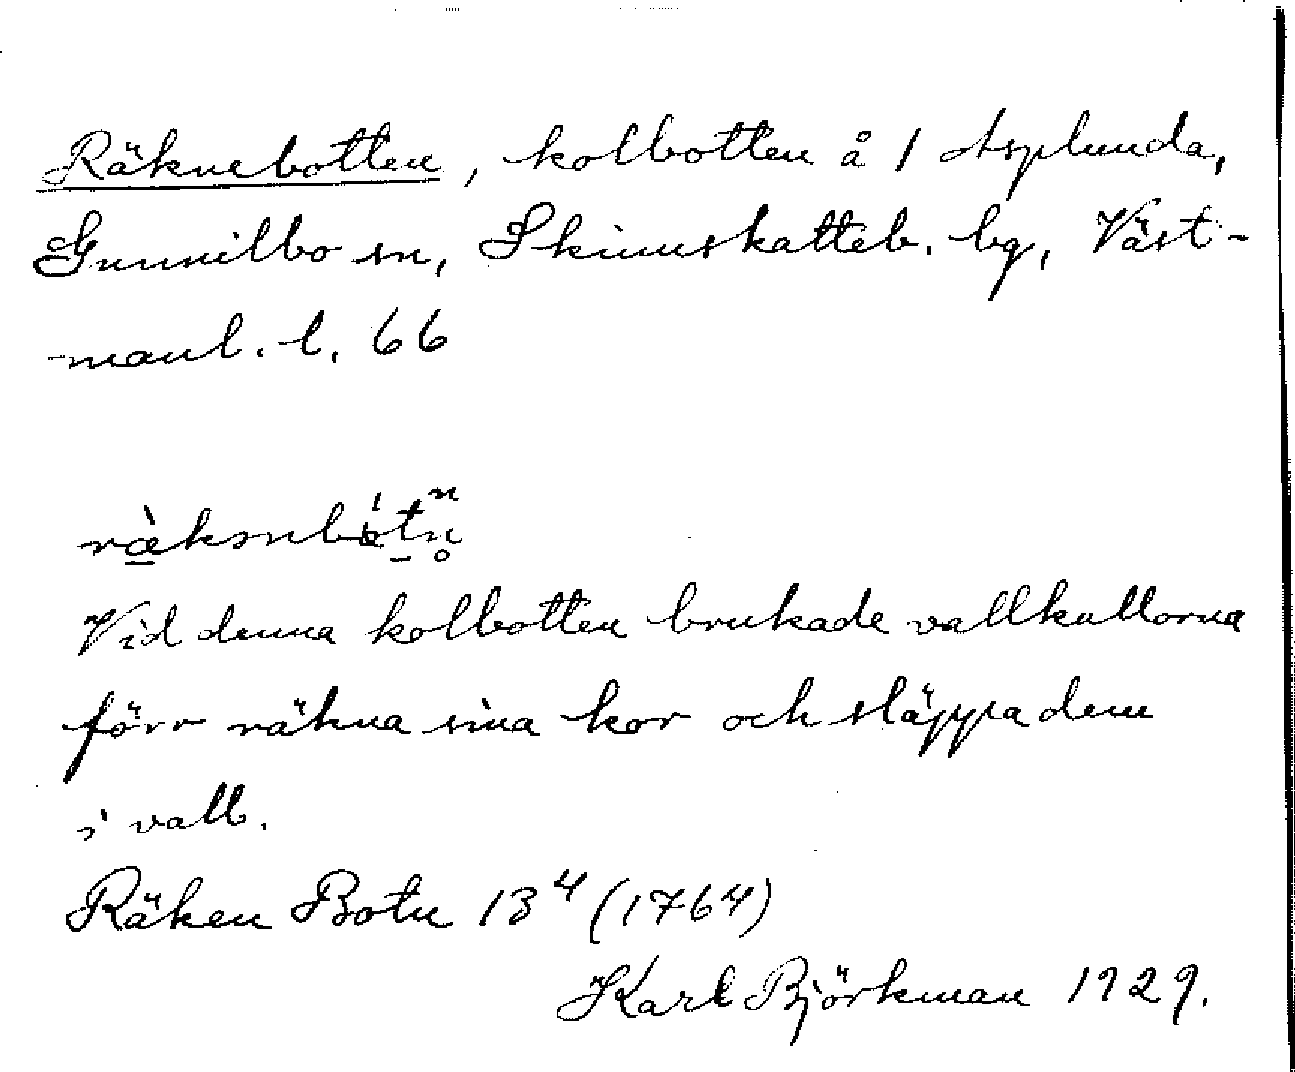 Räknebotten, kolbotten å 1 Asplunda,
Gunnilbo sn, Skinnskatteb. bg, Väst-
manl. l. 66
Vid denna kolbotten brukade vallkullorna
förr räkna sina kor och släppa dem
i vall.
Räken Botn 13⁴ (1764)
Karl Björkman 1929.